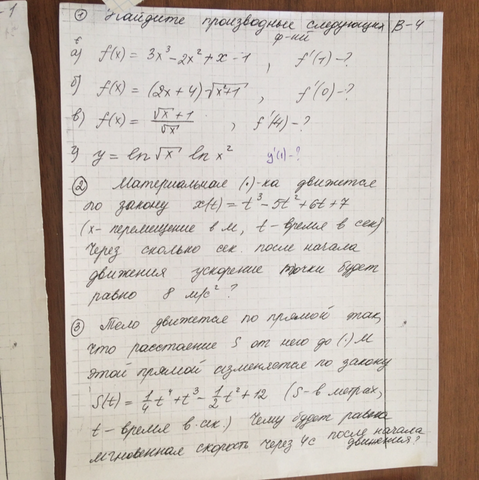 ① Найдите производные следующих ф-ций
В-4
а) f(x) = 3x³ - 2x² + x - 1 , f'(1) - ?
б) f(x) = (2x + 4)√(x²+1) , f'(0) - ?
в) f(x) = (√x + 1)/√x , f'(4) - ?
г) y = ln √x ln x² y'(1) - ?
② Материальная (·)-ка движется
по закону x(t) = t³ - 5t² + 6t + 7
(x - перемещение в м, t - время в сек)
Через сколько сек. после начала
движения ускорение точки будет
равно 8 м/с² ?
③ Тело движется по прямой так,
что расстояние S от него до (·) М
этой прямой изменяется по закону
S(t) = 1/4 t⁴ + t³ - 1/2 t² + 12 (S - в метрах,
t - время в сек.) Чему будет равна
мгновенная скорость через 4с после начала
движения?
-1